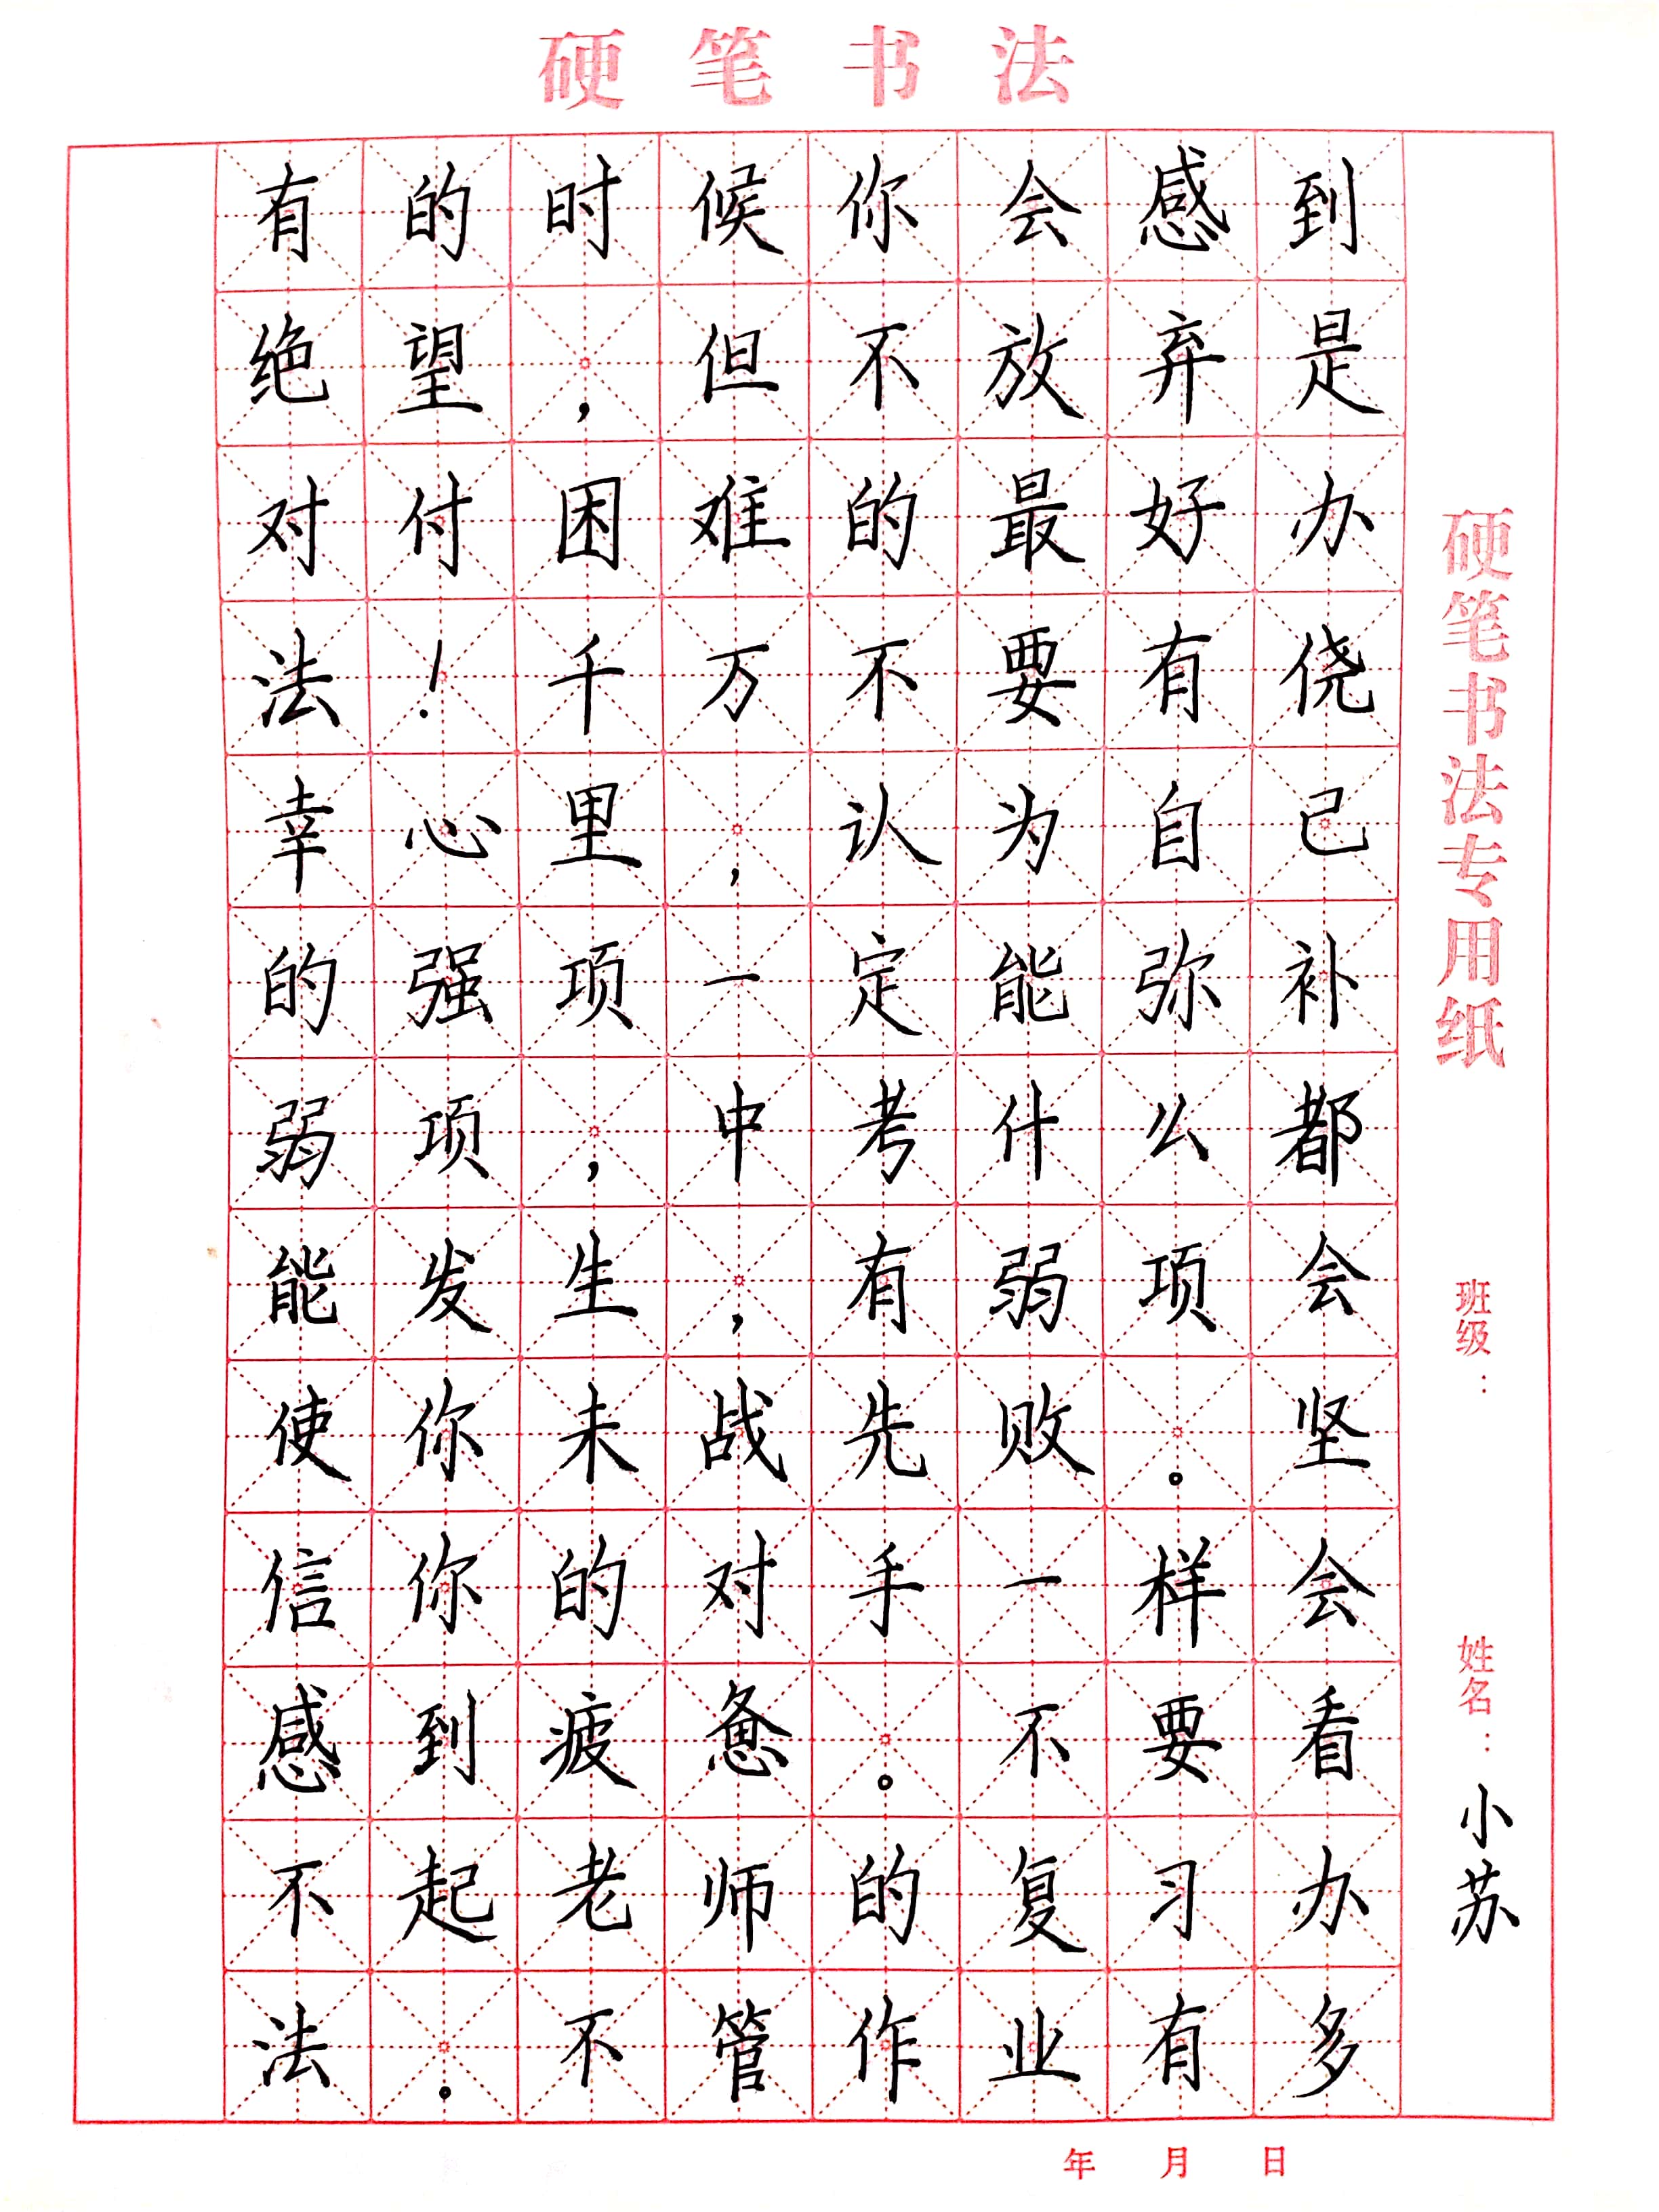 硬笔书法
有的时候你会感到
绝望，但不放弃是
对付困难的最好办
法！千万不要有侥
幸心里，认为自己
的强项一定能弥补
弱项，中考什么都
能发生，有弱项会
使你未战先败。坚
信你的对手一样会
感到疲惫。不要看
不起老师的复习办
法。不管作业有多
硬笔书法专用纸
班级：
姓名：小苏
年 月 日